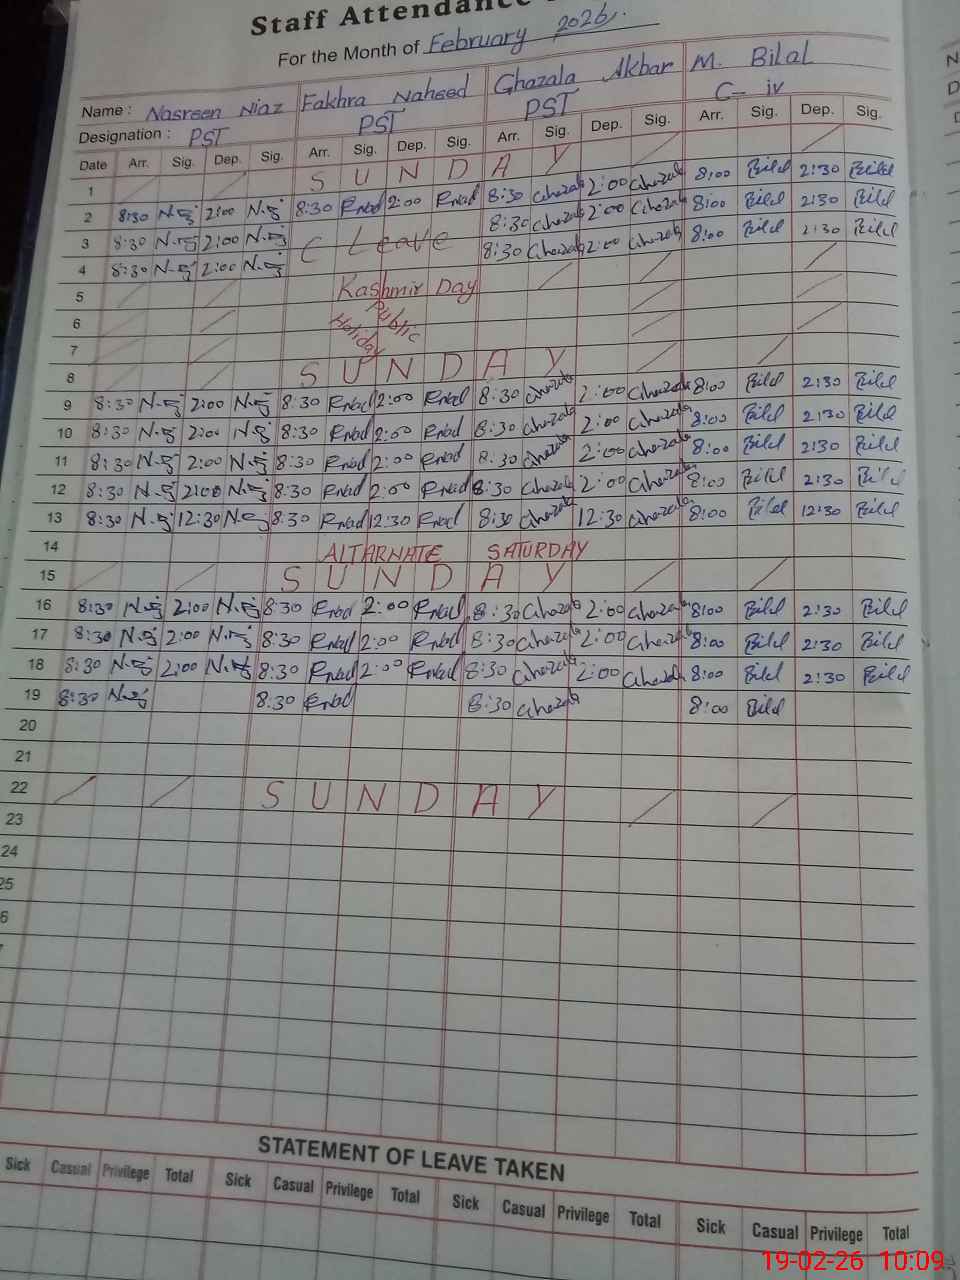 Staff Attendance
For the Month of February 2026.
Name : Nasreen Niaz Fakhra Naheed Ghazala Akbar M. Bilal
Designation : PST PST PST C- iv
Date Arr. Sig. Dep. Sig. Arr. Sig. Dep. Sig. Arr. Sig. Dep. Sig. Arr. Sig. Dep. Sig.
1 S U N D A Y
2 8:30 2:00 8:30 2:00 8:30 Ghazala 2:00 Ghazala 8:00 Bilal 2:30 Bilal
3 8:30 2:00 C Leave 8:30 Ghazala 2:00 Ghazala 8:00 Bilal 2:30 Bilal
4 8:30 2:00 8:30 Ghazala 2:00 Ghazala 8:00 Bilal 2:30 Bilal
5 Kashmir Day
6 Public
7 Holiday
8 S U N D A Y
9 8:30 2:00 8:30 2:00 8:30 Ghazala 2:00 Ghazala 8:00 Bilal 2:30 Bilal
10 8:30 2:00 8:30 2:00 8:30 Ghazala 2:00 Ghazala 8:00 Bilal 2:30 Bilal
11 8:30 2:00 8:30 2:00 8:30 Ghazala 2:00 Ghazala 8:00 Bilal 2:30 Bilal
12 8:30 2:00 8:30 2:00 8:30 Ghazala 2:00 Ghazala 8:00 Bilal 2:30 Bilal
13 8:30 12:30 8:30 12:30 8:30 Ghazala 12:30 Ghazala 8:00 Bilal 12:30 Bilal
14 AlTARNATE SATURDAY
15 S U N D A Y
16 8:30 2:00 8:30 2:00 8:30 Ghazala 2:00 Ghazala 8:00 Bilal 2:30 Bilal
17 8:30 2:00 8:30 2:00 8:30 Ghazala 2:00 Ghazala 8:00 Bilal 2:30 Bilal
18 8:30 2:00 8:30 2:00 8:30 Ghazala 2:00 Ghazala 8:00 Bilal 2:30 Bilal
19 8:30 8:30 8:30 Ghazala 8:00 Bilal
20
21
22 S U N D A Y
23
24
25
6
STATEMENT OF LEAVE TAKEN
Sick Casual Privilege Total Sick Casual Privilege Total Sick Casual Privilege Total Sick Casual Privilege Total
19-02-26 10:09